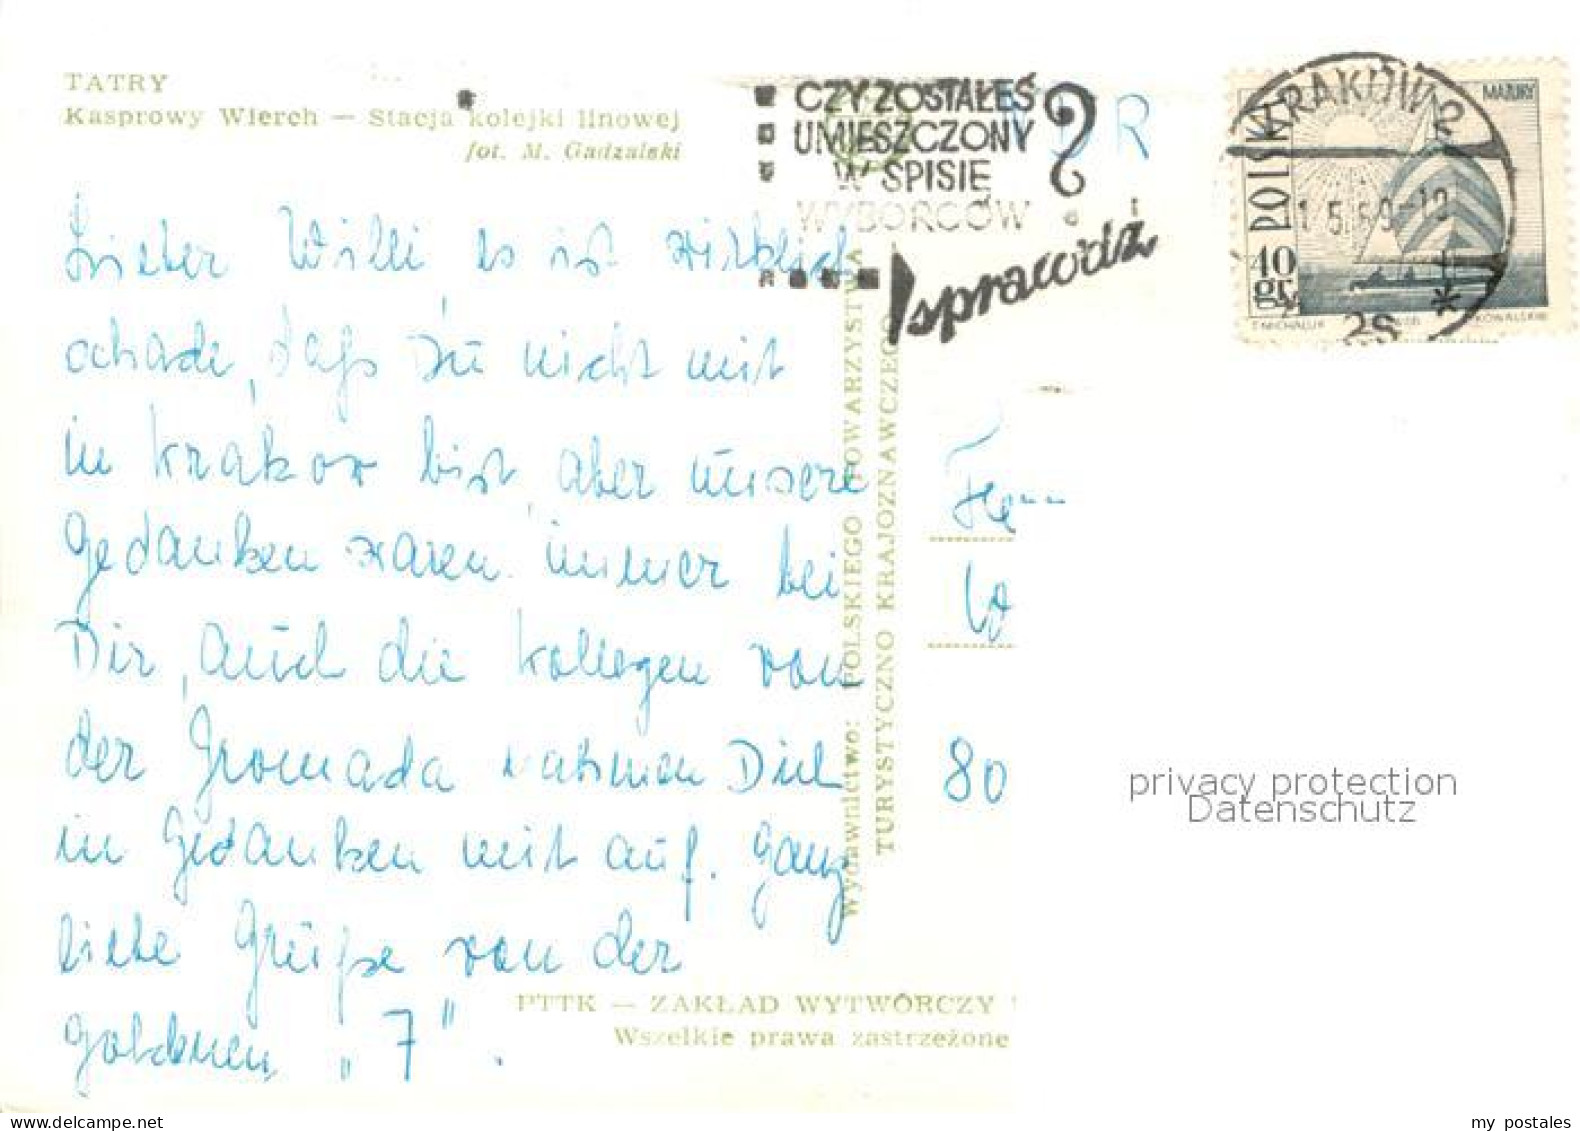 TATRY
Kasprowy Wierch — Stacja kolejki linowej
fot. M. Gadzalski
CZY ZOSTAŁEŚ
UMIESZCZONY
W SPISIE
WYBORCÓW
?
sprawdź
DDR
KRAKÓW 2
1.5.69-12
MAZURY
POLSKA
40
gr
T. MICHALUK
KOWALSKIE
Lieber Willi es ist wirklich
schade, daß Du nicht mit
in Krakow bist, aber unsere
Gedanken waren immer bei
Dir, auch die Kollegen von
der Gromada nahmen Dich
in Gedanken mit auf. Ganz
liebe Grüße von der
goldenen „7".
Wydawnictwo: POLSKIEGO TOWARZYSTWA
TURYSTYCZNO KRAJOZNAWCZEGO
Herrn
W
80
PTTK — ZAKŁAD WYTWÓRCZY
Wszelkie prawa zastrzeżone
privacy protection
Datenschutz
my postales